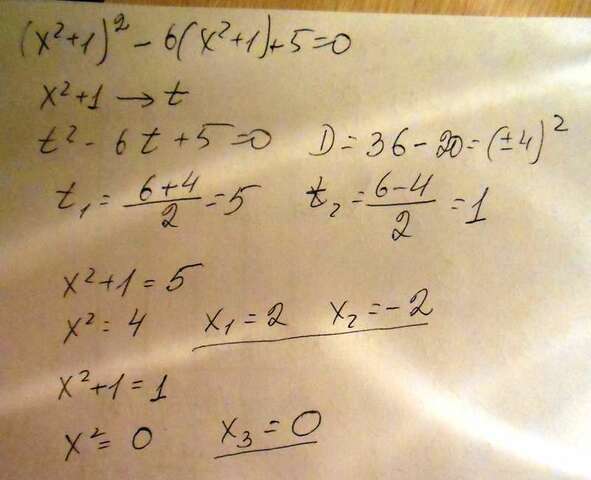 (x²+1)² - 6(x²+1)+5=0
x²+1 → t
t² - 6t+5=0 D=36-20=(±4)²
t₁ = (6+4)/2 = 5 t₂ = (6-4)/2 = 1
x²+1=5
x²=4 x₁=2 x₂=-2
x²+1=1
x²=0 x₃=0